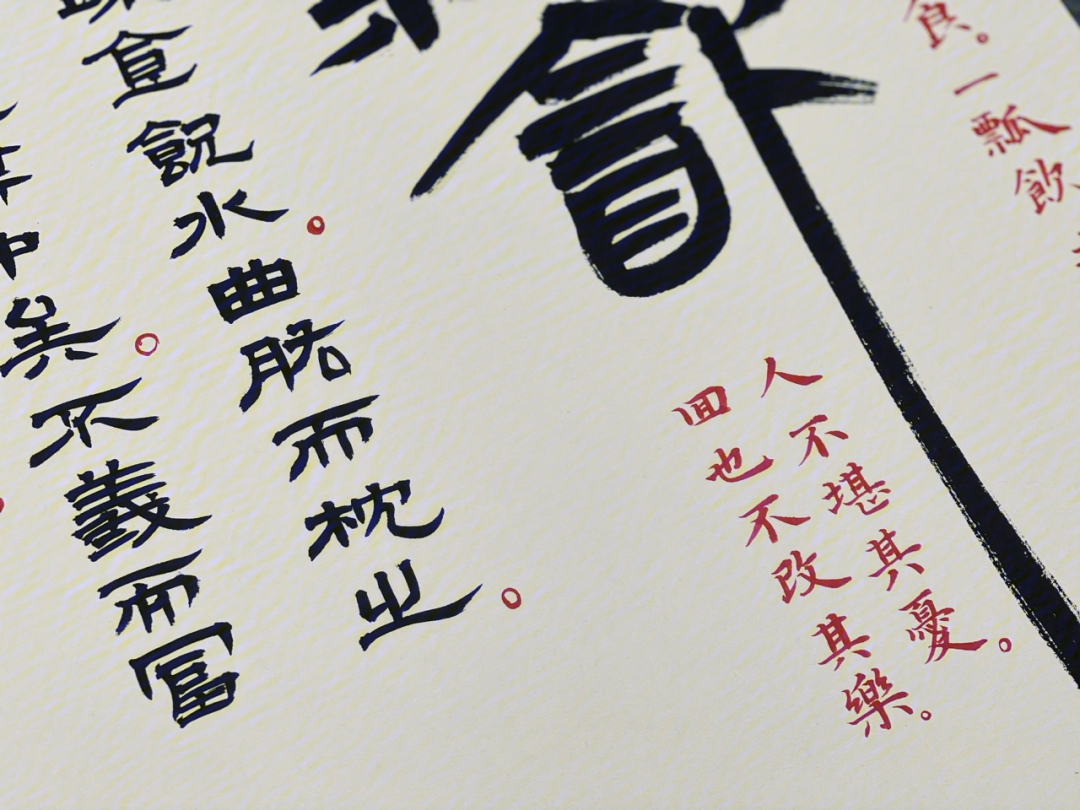 食。一瓢飲
人不堪其憂。
回也不改其樂。
食飲水。曲肱而枕之。
中矣。不義而富